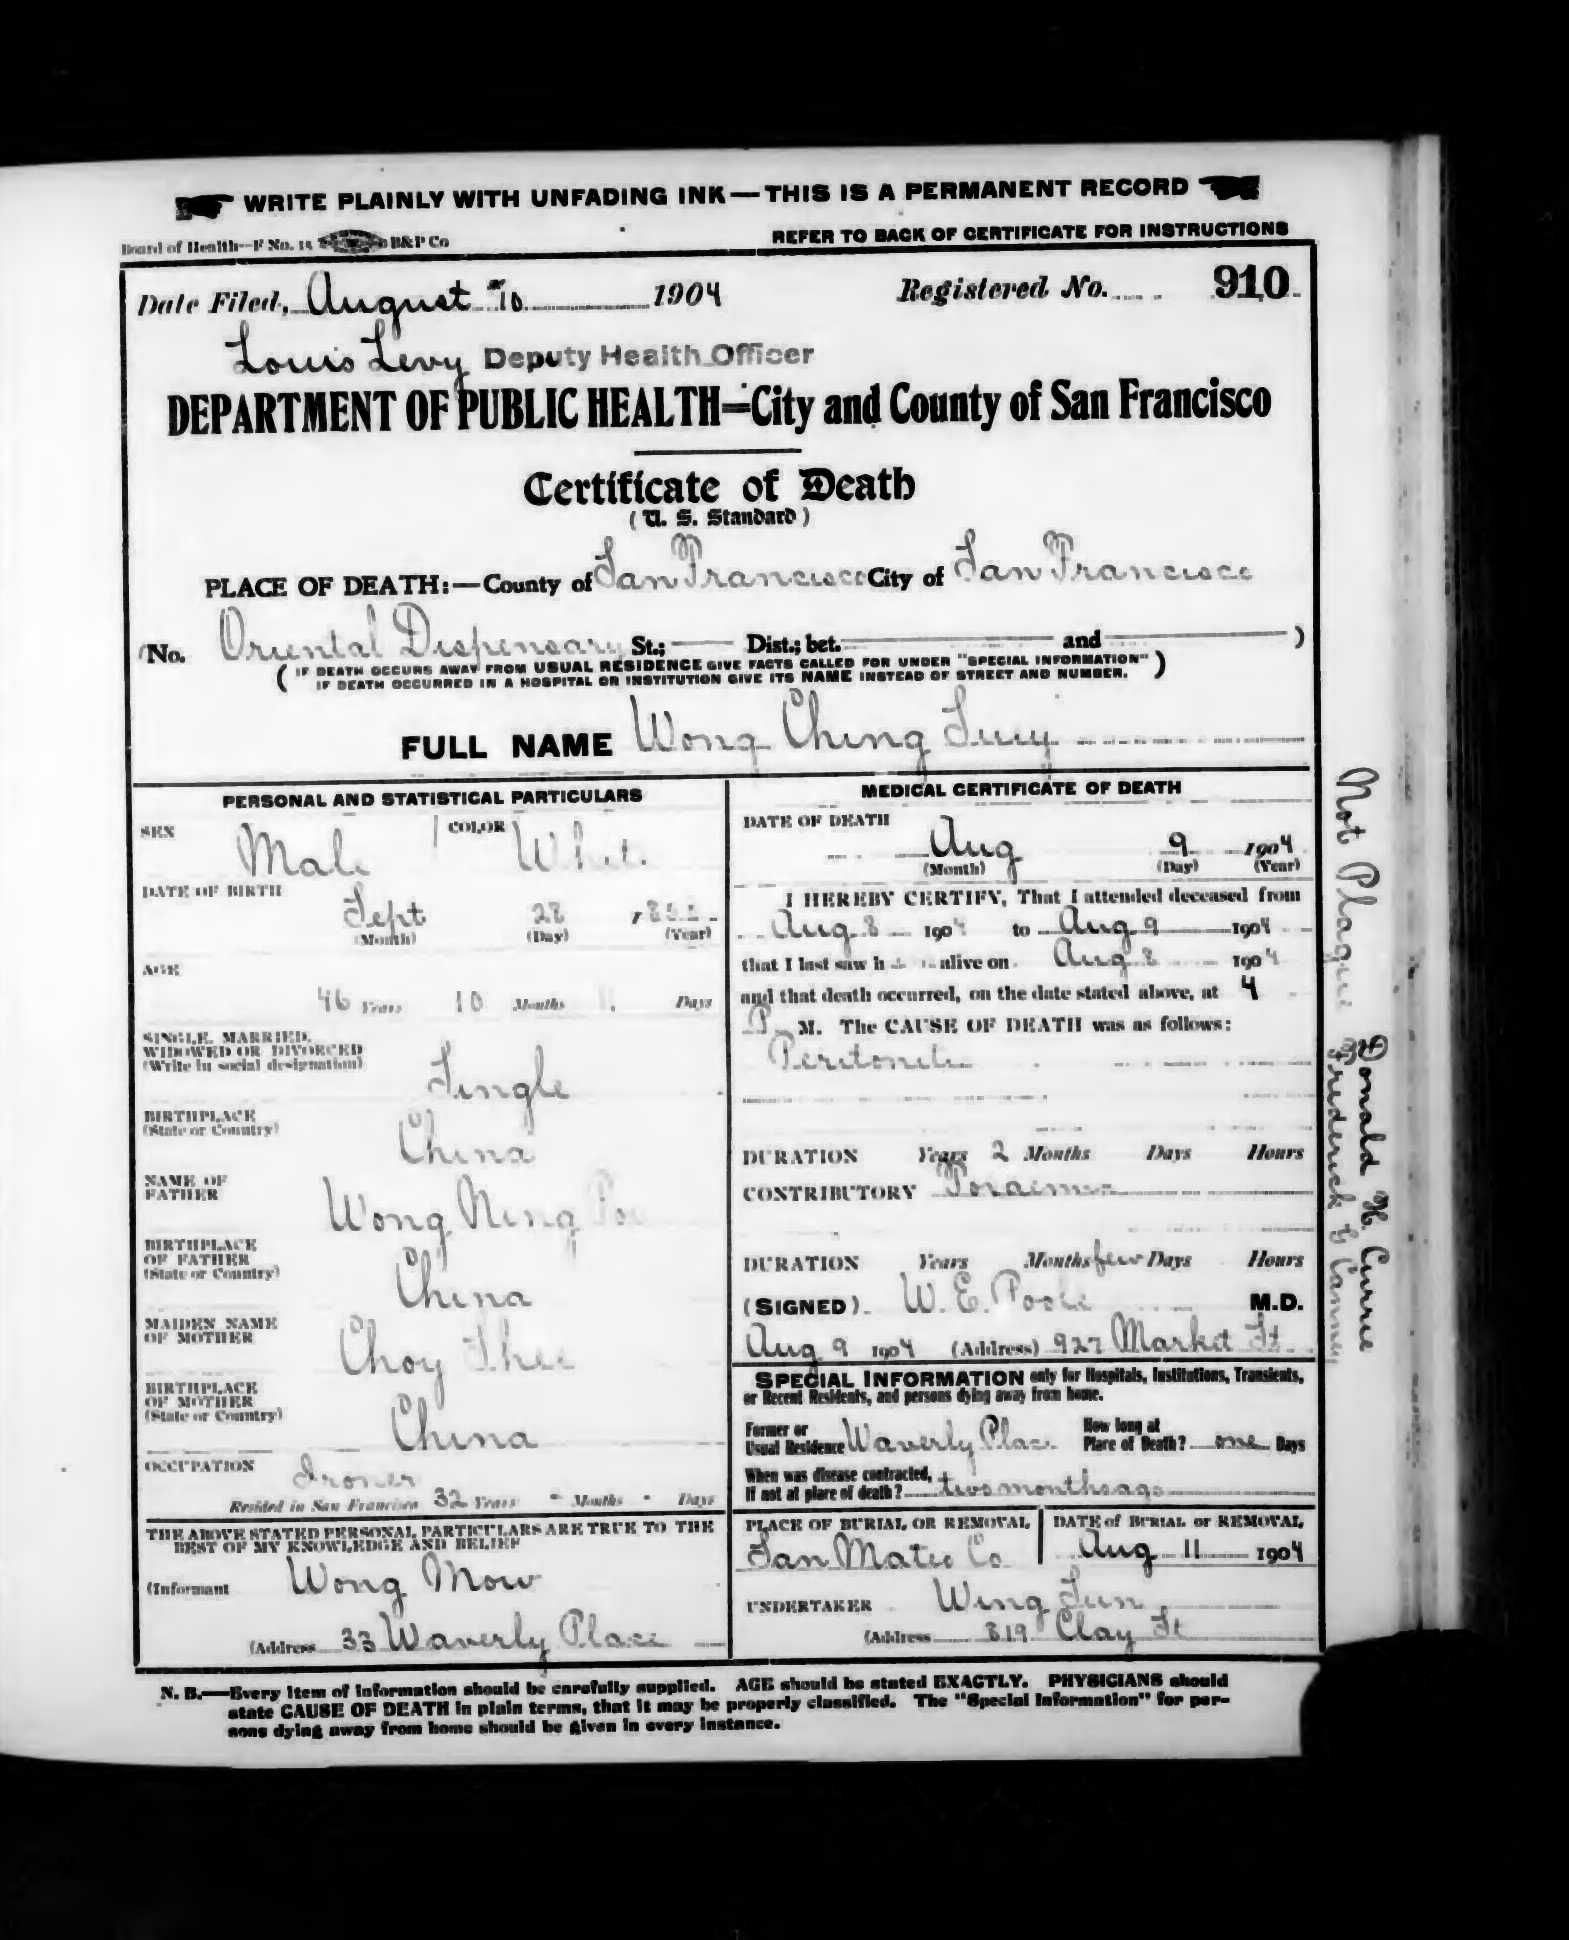 WRITE PLAINLY WITH UNFADING INK — THIS IS A PERMANENT RECORD
Board of Health—F No. 14 B&P Co
REFER TO BACK OF CERTIFICATE FOR INSTRUCTIONS
Date Filed, August 10 1904 Registered No. 910
Louis Levy Deputy Health Officer
DEPARTMENT OF PUBLIC HEALTH=City and County of San Francisco
Certificate of Death
(U. S. Standard)
PLACE OF DEATH:—County of San Francisco City of San Francisco
(No. Oriental Dispensary St.; Dist.; bet. and )
( IF DEATH OCCURS AWAY FROM USUAL RESIDENCE GIVE FACTS CALLED FOR UNDER "SPECIAL INFORMATION" )
IF DEATH OCCURRED IN A HOSPITAL OR INSTITUTION GIVE ITS NAME INSTEAD OF STREET AND NUMBER.
FULL NAME Wong Ching
PERSONAL AND STATISTICAL PARTICULARS
SEX Male COLOR White
DATE OF BIRTH
Sept 28
(Month) (Day) (Year)
AGE
46 Years 10 Months Days
SINGLE, MARRIED,
WIDOWED OR DIVORCED
(Write in social designation)
Single
BIRTHPLACE
(State or Country)
China
NAME OF
FATHER
Wong Ning
BIRTHPLACE
OF FATHER
(State or Country)
China
MAIDEN NAME
OF MOTHER
Choy Shee
BIRTHPLACE
OF MOTHER
(State or Country)
China
OCCUPATION
Ironer
Resided in San Francisco 32 Years - Months - Days
THE ABOVE STATED PERSONAL PARTICULARS ARE TRUE TO THE
BEST OF MY KNOWLEDGE AND BELIEF
(Informant Wong Mow
(Address 33 Waverly Place
MEDICAL CERTIFICATE OF DEATH
DATE OF DEATH
Aug 9 1904
(Month) (Day) (Year)
I HEREBY CERTIFY, That I attended deceased from
Aug 8 1904 to Aug 9 1904
that I last saw h alive on Aug 8 1904
and that death occurred, on the date stated above, at 4
P M. The CAUSE OF DEATH was as follows:
Peritonitis
DURATION Years 2 Months Days Hours
CONTRIBUTORY
DURATION Years Months few Days Hours
(SIGNED) W. E. M.D.
Aug 9 1904 (Address) 927 Market St.
SPECIAL INFORMATION only for Hospitals, Institutions, Transients,
or Recent Residents, and persons dying away from home.
Former or
Usual Residence Waverly Place
How long at
Place of Death? one Days
When was disease contracted,
If not at place of death? two months ago
PLACE OF BURIAL OR REMOVAL
San Mateo Co
DATE of BURIAL or REMOVAL
Aug 11 1904
UNDERTAKER Wing Sun
(Address 819 Clay St
N. B.—Every item of information should be carefully supplied. AGE should be stated EXACTLY. PHYSICIANS should
state CAUSE OF DEATH in plain terms, that it may be properly classified. The "Special Information" for per-
sons dying away from home should be given in every instance.
Not Plague
Donald H. Currie
Frederick G Canney